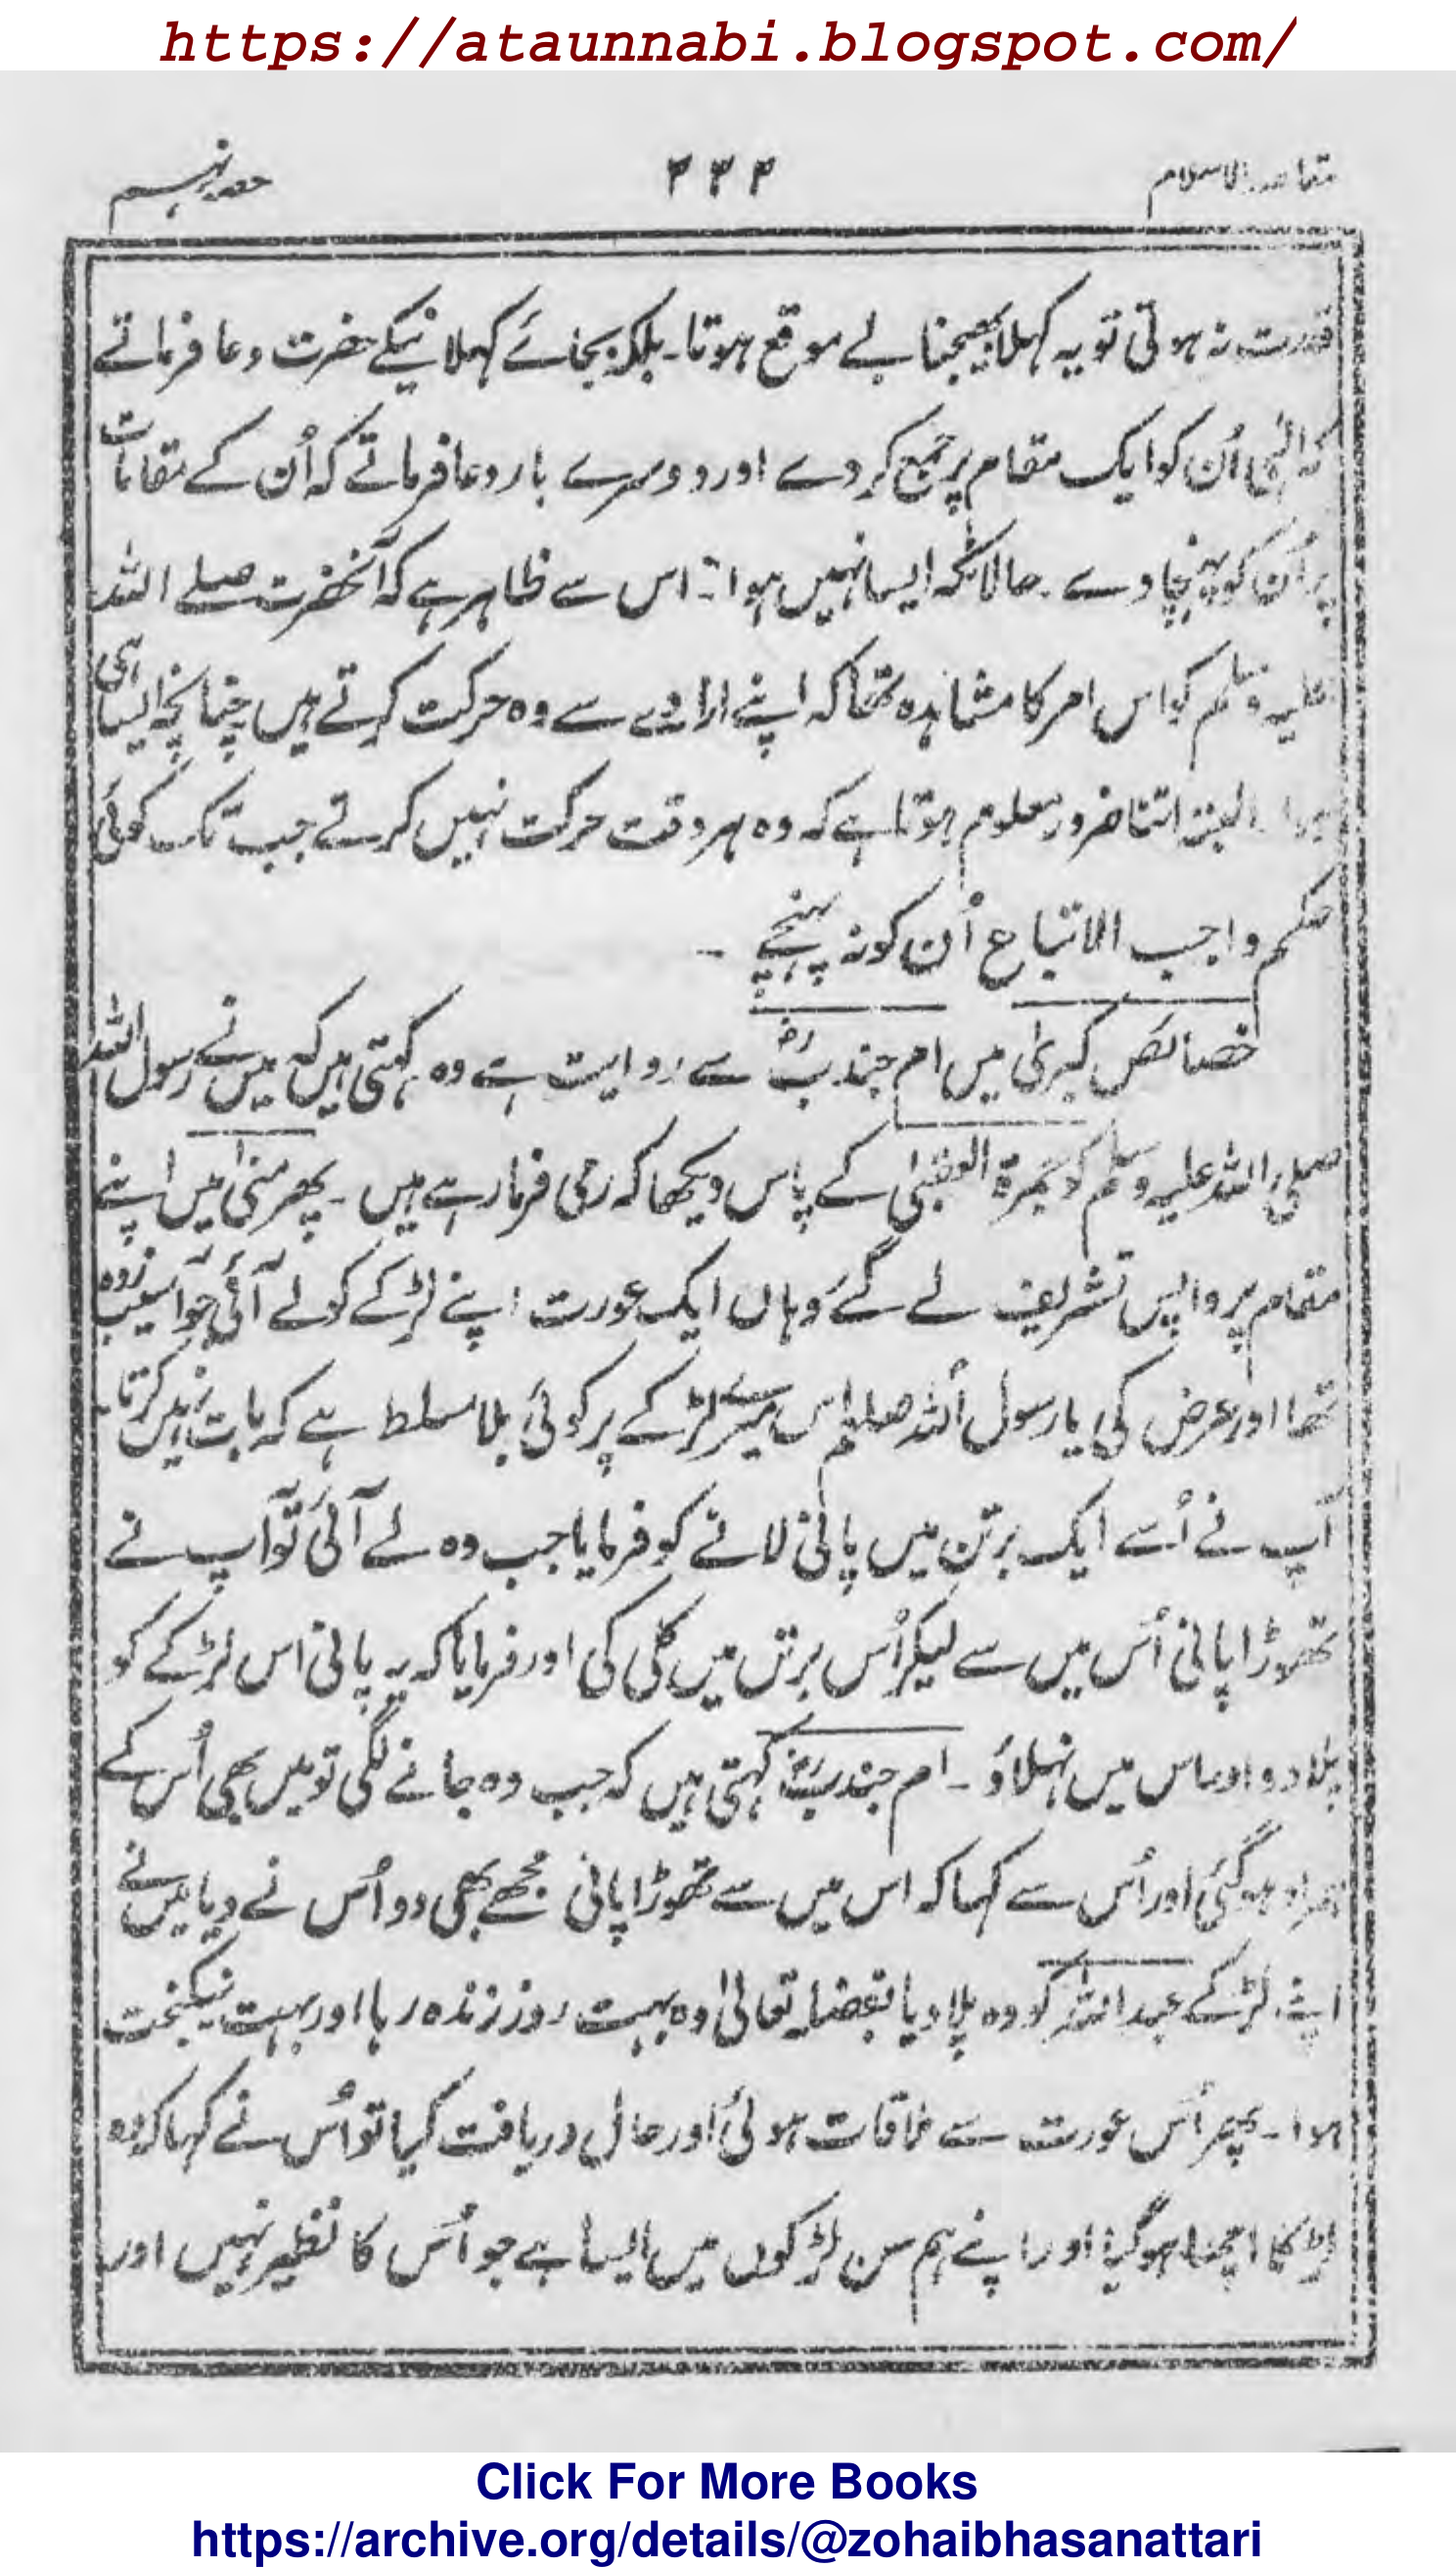 https://ataunnabi.blogspot.com/
مقاصد الاسلام ۲۳۴ حصہ نہم
قدرت نہ ہوتی تو یہ کہلا بھیجنا بے موقع ہوتا۔ بلکہ بجائے کہلانیکے حضرت دعا فرماتے
کہ الٰہی اُن کو ایک مقام پر جمع کردے اور دوسرے بار دعا فرماتے کہ اُن کے مقامات
پر اُن کو پہنچا دے۔ حالانکہ ایسا نہیں ہوا۔ اس سے ظاہر ہے کہ آنحضرت صلے اللہ
علیہ وسلم کو اس امر کا مشاہدہ تھا کہ اپنے ارادے سے وہ حرکت کرتے ہیں چنانچہ ایسا ہی
ہوا۔ البتہ اتنا ضرور معلوم ہوتا ہے کہ وہ ہر وقت حرکت نہیں کرتے جب تک کوئی
حکم واجب الاتباع اُن کو نہ پہنچے ۔
خصائص کبریٰ میں ام جندبؓ سے روایت ہے وہ کہتی ہیں کہ میں نے رسول اللہ
صلی اللہ علیہ وسلم کو جمرۃ العقبیٰ کے پاس دیکھا کہ رمی فرما رہے ہیں ۔ پھر منیٰ میں اپنے
مقام پر واپس تشریف لے گئے وہاں ایک عورت اپنے لڑکے کو لے آئی جو آسیب زدہ
تھا اور عرض کی یا رسول اللہ صلعم اس میرے لڑکے پر کوئی بلا مسلط ہے کہ بات نہیں کرتا۔
آپ نے اُسے ایک برتن میں پانی لانے کو فرمایا جب وہ لے آئی تو آپ نے
تھوڑا پانی اُس میں سے لیکر اُس برتن میں کلی کی اور فرمایا کہ یہ پانی اس لڑکے کو
پلا دو اور اس میں نہلاؤ ۔ ام جندبؓ کہتی ہیں کہ جب وہ جانے لگی تو میں بھی اُس کے
ہمراہ ہوگئی اور اُس سے کہا کہ اس میں سے تھوڑا پانی مجھے بھی دو اُس نے دیا میں نے
اپنے لڑکے عبداللہ کو وہ پلا دیا بفضلہ تعالیٰ وہ بہت روز زندہ رہا اور بہت نیکبخت
ہوا۔ پھر اُس عورت سے ملاقات ہوئی اور حال دریافت کیا تو اُس نے کہا کہ وہ
لڑکا اچھا ہوگیا اور اپنے ہم سن لڑکوں میں ایسا ہے جو اُس کا نظیر نہیں اور
Click For More Books
https://archive.org/details/@zohaibhasanattari